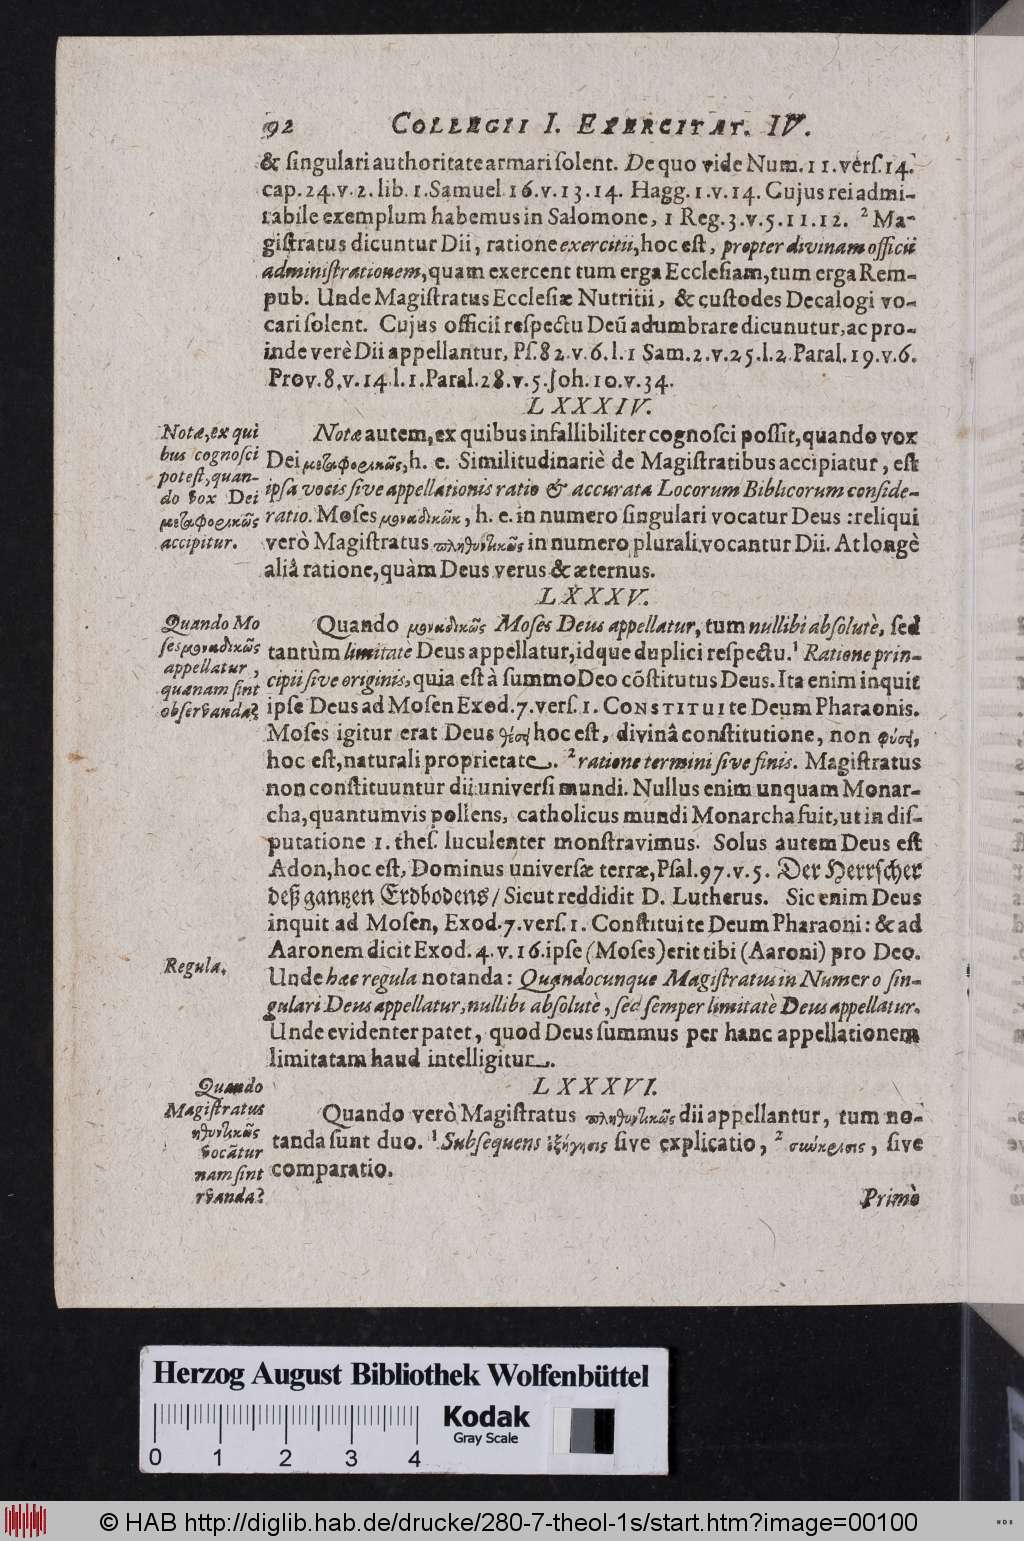 92 COLLEGII I. EXERCITAT. IV.
& ſingulari authoritate armari ſolent. De quo vide Num. 11. verſ. 14.
cap. 24. v. 2. lib. 1. Samuel 16. v. 13. 14. Hagg. 1. v. 14. Cujus rei admi-
rabile exemplum habemus in Salomone, 1 Reg. 3. v. 5. 11. 12. ² Ma-
giſtratus dicuntur Dii, ratione exercitii, hoc eſt, propter divinam officii
adminiſtrationem, quam exercent tum erga Eccleſiam, tum erga Rem-
pub. Unde Magiſtratus Eccleſiæ Nutritii, & cuſtodes Decalogi vo-
cari ſolent. Cujus officii reſpectu Deū adumbrare dicunutur, ac pro-
inde verè Dii appellantur, Pſ. 82. v. 6. l. 1 Sam. 2. v. 25. l. 2 Paral. 19. v. 6.
Prov. 8. v. 14 l. 1. Paral. 28. v. 5. Joh. 10. v. 34.
LXXXIV.
Notæ, ex qui
bus cognoſci
poteſt, quan-
do vox Dei
μεταφορικῶς
accipitur.
Notæ autem, ex quibus infallibiliter cognoſci poſſit, quando vox
Dei μεταφορικῶς, h. e. Similitudinariè de Magiſtratibus accipiatur, eſt
ipſa vocis ſive appellationis ratio & accurata Locorum Biblicorum conſide-
ratio. Moſes μοναδικῶκ, h. e. in numero ſingulari vocatur Deus : reliqui
verò Magiſtratus πληθυντικῶς in numero plurali vocantur Dii. At longè
aliâ ratione, quàm Deus verus & æternus.
LXXXV.
Quando Mo
ſes μοναδικῶς
appellatur,
quænam ſint
obſervanda?
Quando μοναδικῶς Moſes Deus appellatur, tum nullibi abſolutè, ſed
tantùm limitate Deus appellatur, idque duplici reſpectu. ¹ Ratione prin-
cipii ſive originis, quia eſt à ſummo Deo cōſtitutus Deus. Ita enim inquit
ipſe Deus ad Moſen Exod. 7. verſ. 1. CONSTITUI te Deum Pharaonis.
Moſes igitur erat Deus θέσει hoc eſt, divinâ conſtitutione, non φύσει,
hoc eſt, naturali proprietate. ² ratione termini ſive finis. Magiſtratus
non conſtituuntur dii univerſi mundi. Nullus enim unquam Monar-
cha, quantumvis pollens, catholicus mundi Monarcha fuit, ut in diſ-
putatione 1. theſ. luculenter monſtravimus. Solus autem Deus eſt
Adon, hoc eſt, Dominus univerſæ terræ, Pſal. 97. v. 5. Der Herrſcher
deß gantzen Erdbodens / Sicut reddidit D. Lutherus. Sic enim Deus
inquit ad Moſen, Exod. 7. verſ. 1. Conſtitui te Deum Pharaoni: & ad
Aaronem dicit Exod. 4. v. 16. ipſe (Moſes) erit tibi (Aaroni) pro Deo.
Regula.
Unde hæc regula notanda: Quandocunque Magiſtratus in Numero ſin-
gulari Deus appellatur, nullibi abſolutè, ſed ſemper limitatè Deus appellatur.
Unde evidenter patet, quod Deus ſummus per hanc appellationem
limitatam haud intelligitur.
LXXXVI.
Quando
Magiſtratus
ηθυντικῶς
vocātur
nam ſint
rvanda?
Quando verò Magiſtratus πληθυντικῶς dii appellantur, tum no-
tanda ſunt duo. ¹ Subſequens ἐξήγησις ſive explicatio, ² σύγκρισις, ſive
comparatio.
Primò
Herzog August Bibliothek Wolfenbüttel
Kodak
Gray Scale
0 1 2 3 4
© HAB http://diglib.hab.de/drucke/280-7-theol-1s/start.htm?image=00100